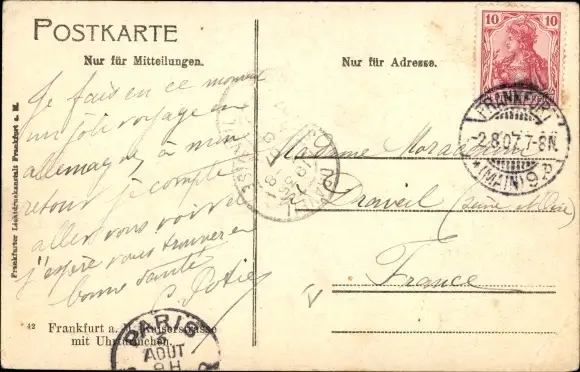 POSTKARTE
Nur für Mitteilungen.
Nur für Adresse.
10 10
FRANKFURT
-2.8.07.7-8N.
*(MAIN)9
Je fais en ce moment
un joli voyage en
allemagne, à mon
retour je compte
aller vous voir et
j'espère vous trouver en
bonne santé
Madame
Draveil (Seine et Oise)
France
Frankfurter Lichtdruckanstalt Frankfurt a. M.
42 Frankfurt a. M. Kaiserstrasse
mit Uhrtürmchen
PARIS
AOUT